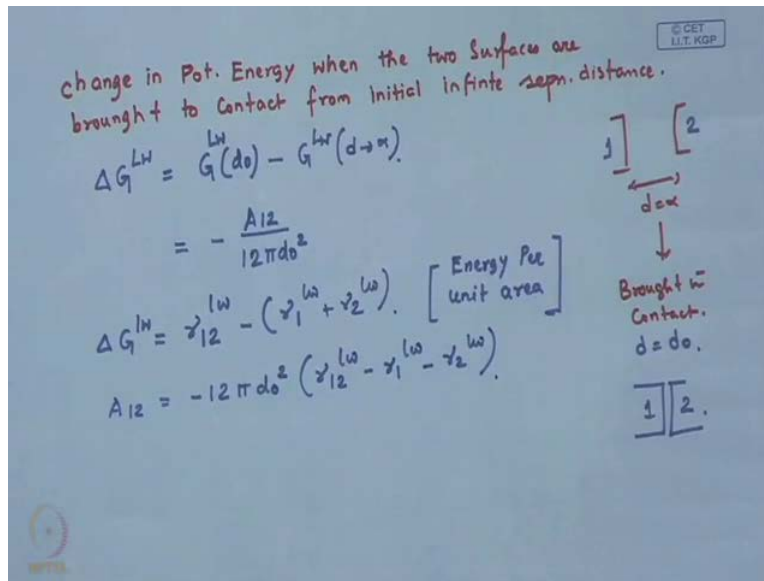 © CET
I.I.T. KGP
change in Pot. Energy when the two Surfaces are
brounght to Contact from initial infinte sepn. distance.
ΔG^LW = G^LW(d₀) - G^LW(d→∝).
= - A12 / 12πd₀²
ΔG^LW = γ12^LW - (γ1^LW + γ2^LW). [Energy Per unit area]
A12 = -12πd₀² (γ12^LW - γ1^LW - γ2^LW).
1] [2
d=∝
↓
Brought in
Contact.
d = d₀.
1 2.
NPTEL